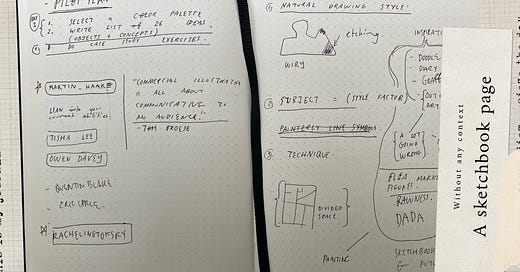 PILOT PLAN
1. SELECT A COLOR PALETTE
2. WRITE LIST OF 26 IDEAS
(OBJECTS + CONCEPTS)
DO CASE STUDY EXERCISES.
MARTIN HAAKE
LEAN into your
current abilities
TISHA LEE
OWEN DAVEY
- QUENTIN BLAKE
- ERIC CARLE
RACHELINGTOKSKY
"COMMERCIAL ILLUSTRATION
IS ALL ABOUT
COMMUNICATING TO
AN AUDIENCE."
- TOM FROESE
① NATURAL DRAWING STYLE:
etching.
WIRY
② SUBJECT = (STYLE FACTOR)
PAINTERLY LINE SYMBOLS
③ TECHNIQUE.
DIVIDED
SPACE.
PAINTING.
INSPIRATI
- DOODLE
- DIARY
- GRAFF
A LOT
GOING
WRONG
FLEA MARK
RAWNESS.
DADA
SKETCHBOOK
for FUTU
Without any context
A sketchbook page